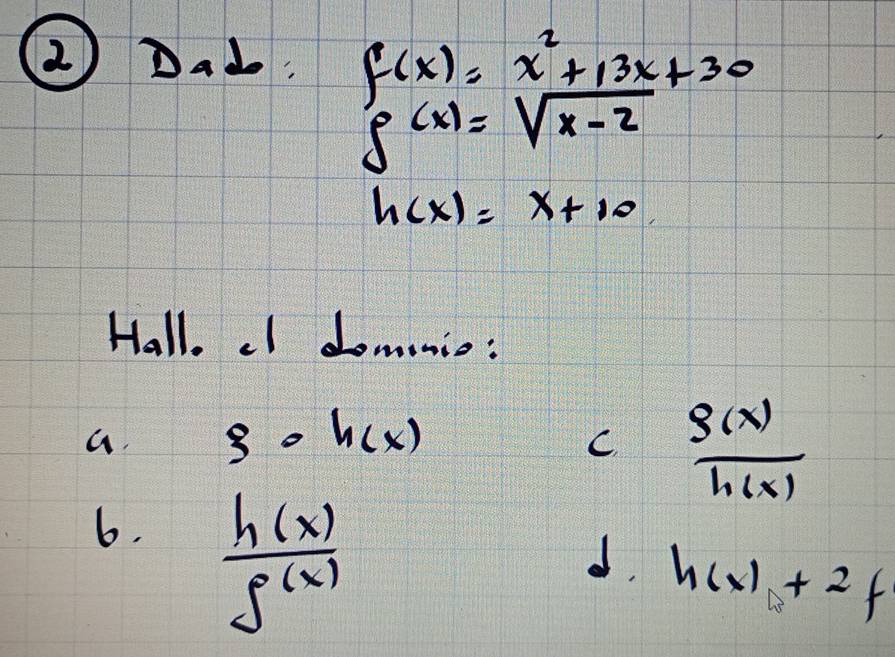 2 Dado: f(x) = x² + 13x + 30
g(x) = √x-2
h(x) = x + 10
Halle el dominio:
a. g ∘ h(x)
c g(x)/h(x)
b. h(x)/g(x)
d. h(x) + 2f